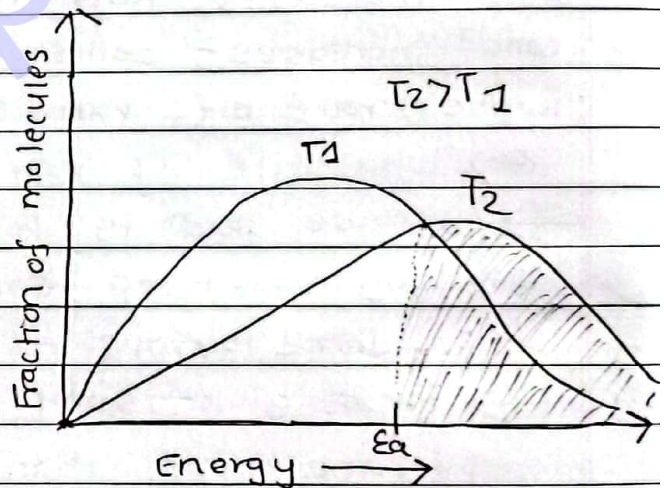 Fraction of molecules
T2>T1
T1
T2
Ea
Energy